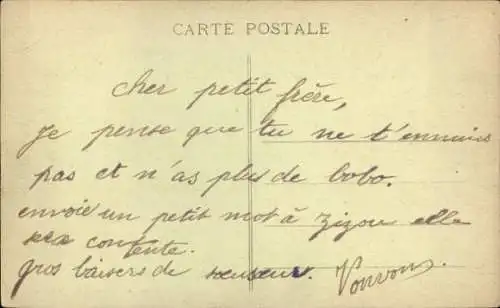 CARTE POSTALE
cher petit frère,
je pense que tu ne t'ennuies
pas et n'as plus de bobo.
envoie un petit mot à Zizou elle
sera contente.
gros baisers de